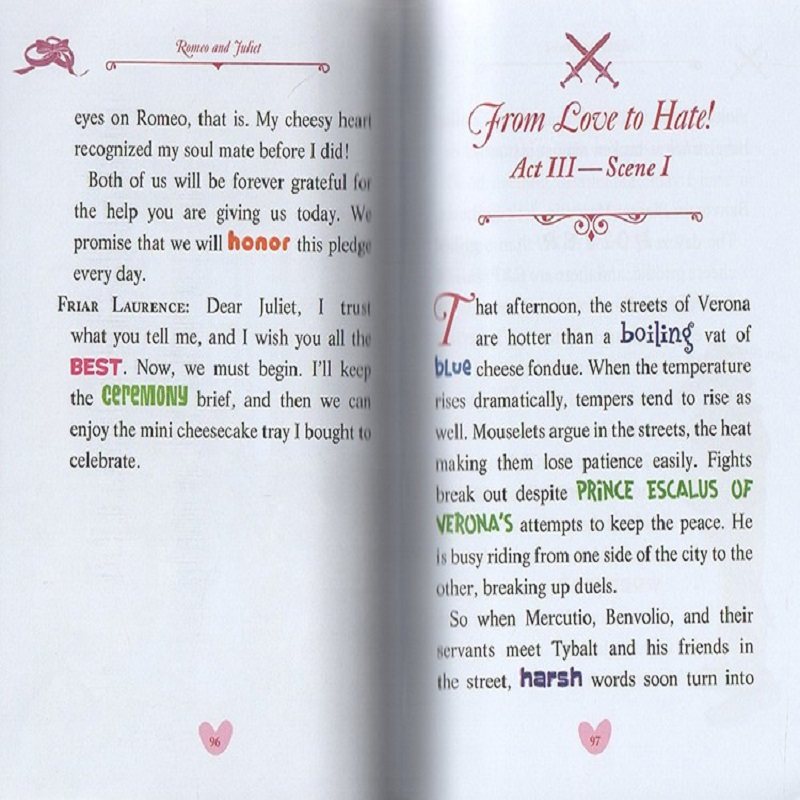 Romeo and Juliet
eyes on Romeo, that is. My cheesy heart
recognized my soul mate before I did!
Both of us will be forever grateful for
the help you are giving us today. We
promise that we will honor this pledge
every day.
FRIAR LAURENCE: Dear Juliet, I trust
what you tell me, and I wish you all the
BEST. Now, we must begin. I'll keep
the CEREMONY brief, and then we can
enjoy the mini cheesecake tray I bought to
celebrate.
96
From Love to Hate!
Act III—Scene I
That afternoon, the streets of Verona
are hotter than a boiling vat of
blue cheese fondue. When the temperature
rises dramatically, tempers tend to rise as
well. Mouselets argue in the streets, the heat
making them lose patience easily. Fights
break out despite PRINCE ESCALUS OF
VERONA'S attempts to keep the peace. He
is busy riding from one side of the city to the
other, breaking up duels.
So when Mercutio, Benvolio, and their
servants meet Tybalt and his friends in
the street, harsh words soon turn into
97